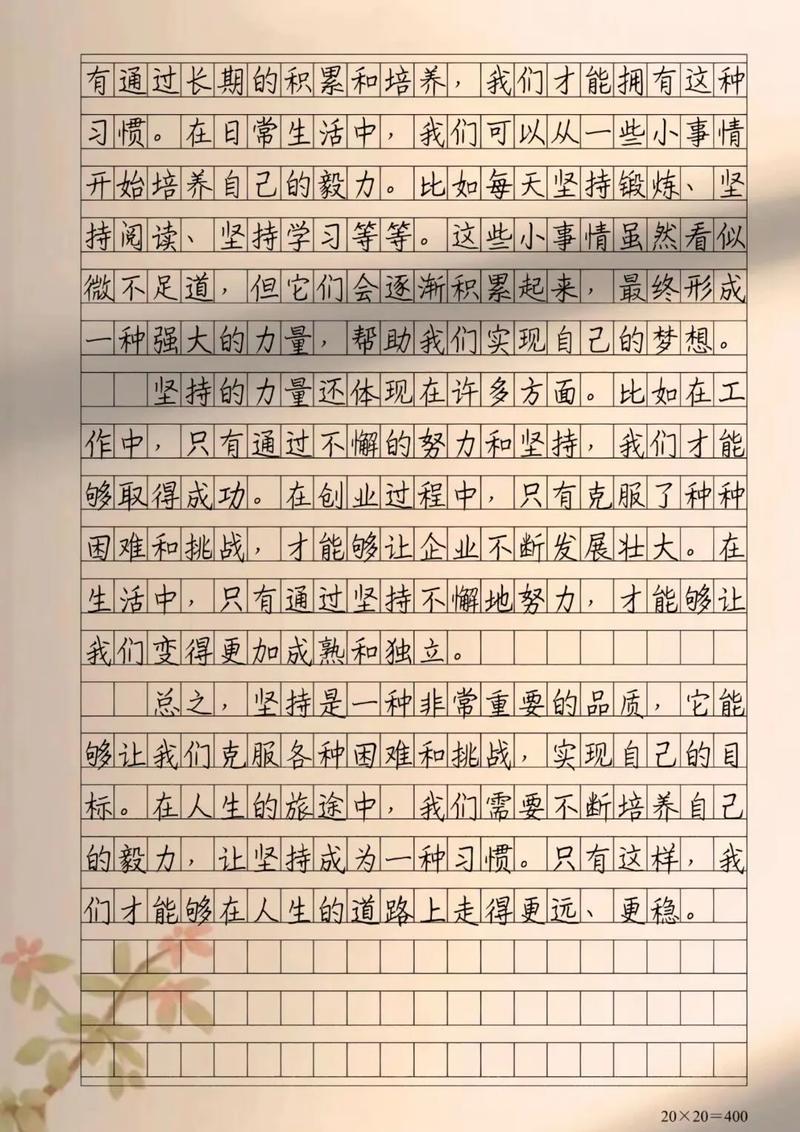 有通过长期的积累和培养，我们才能拥有这种
习惯。在日常生活中，我们可以从一些小事情
开始培养自己的毅力。比如每天坚持锻炼、坚
持阅读、坚持学习等等。这些小事情虽然看似
微不足道，但它们会逐渐积累起来，最终形成
一种强大的力量，帮助我们实现自己的梦想。
坚持的力量还体现在许多方面。比如在工
作中，只有通过不懈的努力和坚持，我们才能
够取得成功。在创业过程中，只有克服了种种
困难和挑战，才能够让企业不断发展壮大。在
生活中，只有通过坚持不懈地努力，才能够让
我们变得更加成熟和独立。
总之，坚持是一种非常重要的品质，它能
够让我们克服各种困难和挑战，实现自己的目
标。在人生的旅途中，我们需要不断培养自己
的毅力，让坚持成为一种习惯。只有这样，我
们才能够在人生的道路上走得更远、更稳。
20×20=400